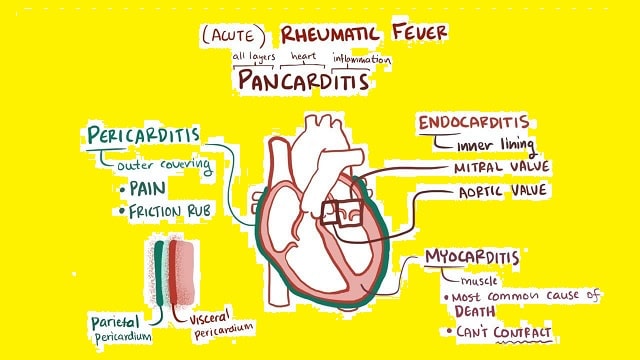 (ACUTE) RHEUMATIC FEVER
all layers heart inflammation
PANCARDITIS
PERICARDITIS
outer covering
• PAIN
• FRICTION RUB
Parietal
pericardium
Visceral
pericardium
ENDOCARDITIS
inner lining
MITRAL VALVE
AORTIC VALVE
MYOCARDITIS
muscle
• MOST COMMON CAUSE OF
DEATH
• CAN'T CONTRACT